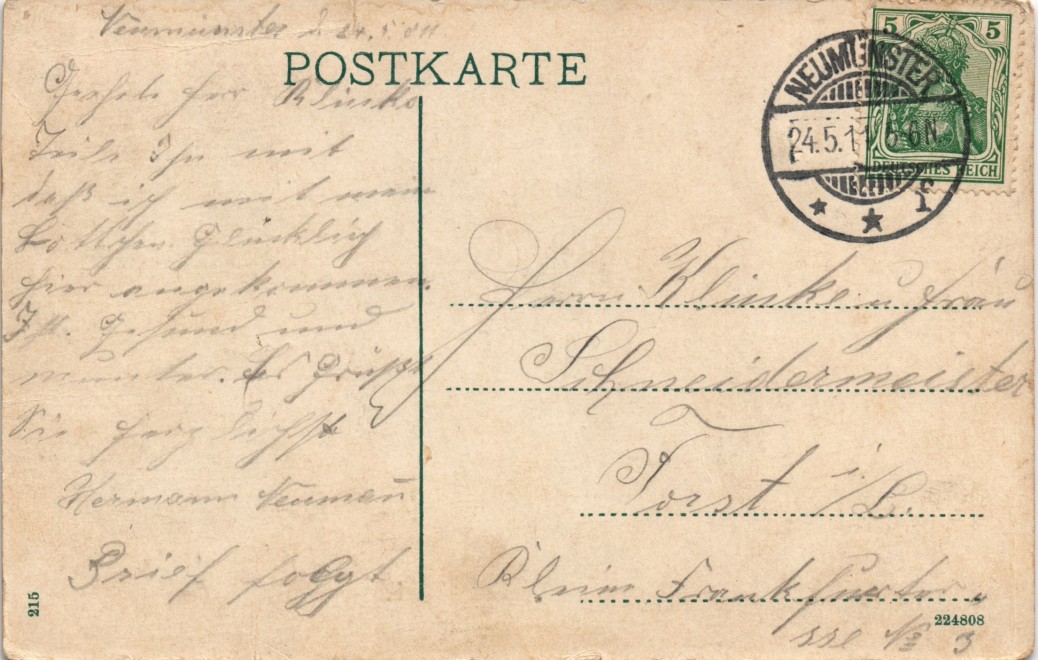 Neumünster d. 24.5.011
POSTKARTE
5 5
NEUMÜNSTER
24.5.11 5-6N.
DEUTSCHES REICH
* * f
Herr Klinke
Teile Ihn mit
daß ich mit mein
Lottchen Glücklich
hier angekommen.
Gesund und
munter. Es Grüßt
Sie herzlichst
Hermann Neuman
Brief folgt.
Herrn Klinke u frau
Schneidermeister
Forst i/L.
Klein Frankfurter
sse № 3
215
224808